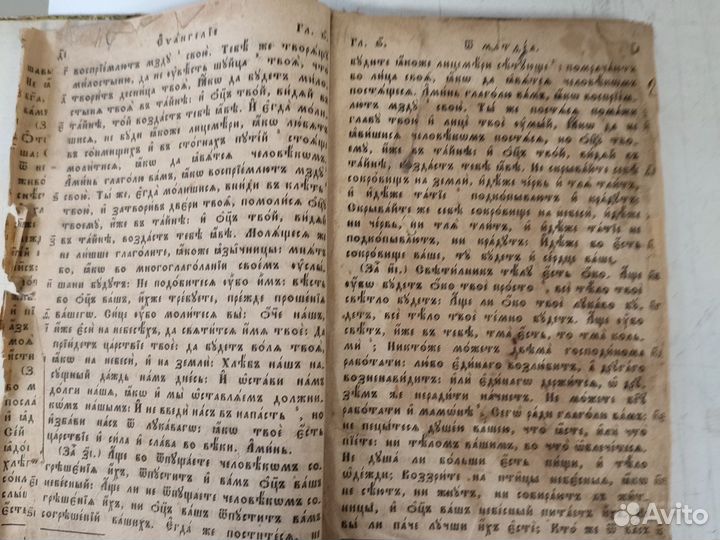 Єѵангелїе Гл. ѕ҃.
воспрїемлютъ мзду свою. Тебѣ же творящу
милостыню, да не увѣсть шуйца твоя, что
творитъ десница твоя, ꙗкѡ да будетъ мило
стыня твоя въ тайнѣ: и Оц҃ъ твой, видяй въ
тайнѣ, той воздастъ тебѣ ꙗвѣ. И егда моли
шися, не буди ꙗкоже лицемѣри, ꙗкѡ любятъ
въ сонмищихъ и въ стогнахъ путїй стояще
молитися, ꙗкѡ да ꙗвятся человѣкѡмъ.
Аминь глаголю вамъ, ꙗкѡ воспрїемлютъ мзду
свою. Ты же, егда молишися, вниди въ клѣть
твою, и затворивъ двери твоя, помолися Оц҃у
твоему, иже въ тайнѣ: и Оц҃ъ твой, видяй
въ тайнѣ, воздастъ тебѣ ꙗвѣ. Молящеся же
не лишше глаголите, ꙗкоже ꙗзычницы: мнятъ
бо, ꙗкѡ во многоглаголанїи своемъ услы
шани будутъ. Не подобитеся убо имъ: вѣсть
бо Оц҃ъ вашъ, ихже требуете, прежде прошенїя
вашегѡ. Сице убо молитеся вы: Оч҃е нашъ,
иже еси на небесѣхъ, да святится имя твое: Да
прїидетъ царствїе твое: да будетъ воля твоя,
ꙗкѡ на небеси, и на земли: Хлѣбъ нашъ на
сущный даждь намъ днесь: И ѡстави намъ
долги нашя, ꙗкѡ и мы ѡставляемъ должни
кѡмъ нашымъ: И не введи насъ въ напасть, но
избави насъ ѿ лукавагѡ: ꙗкѡ твое есть
царствїе и сила и слава во вѣки. Аминь.
(За҄ з҃і.) Аще бо ѿпущаете человѣкѡмъ со
грѣшенїя ихъ, ѿпуститъ и вамъ Оц҃ъ вашъ
небесный: Аще ли не ѿпущаете человѣкѡмъ со
грѣшенїя ихъ, ни Оц҃ъ вашъ ѿпуститъ вамъ
согрѣшенїй вашихъ. Егда же поститеся, не
Гл. ѕ҃. Ѿ матѳеа.
будите ꙗкоже лицемѣри сѣтующе: помрачаютъ
бо лица своя, ꙗкѡ да ꙗвятся человѣкѡмъ
постящеся. Аминь глаголю вамъ, ꙗкѡ воспрїем
лютъ мзду свою. Ты же постяся помажи
главу твою и лице твое умый, Ꙗкѡ да не
ꙗвишися человѣкѡмъ постяся, но Оц҃у тво
ему, иже въ тайнѣ: и Оц҃ъ твой, видяй въ
тайнѣ, воздастъ тебѣ ꙗвѣ. Не скрывайте себѣ
сокровищъ на земли, идѣже червь и тля тлитъ,
и идѣже татїе подкопываютъ и крадутъ:
Скрывайте же себѣ сокровище на небеси, идѣже
ни червь, ни тля тлитъ, и идѣже татїе не
подкопываютъ, ни крадутъ: Идѣже бо есть
сокровище ваше, ту будетъ и сердце ваше.
(За҄ и҃і.) Свѣтилникъ тѣлу есть око. Аще
убѡ будетъ око твое просто, все тѣло твое
свѣтло будетъ: Аще ли око твое лукаво бу
детъ, все тѣло твое темно будетъ. Аще убо
свѣтъ, иже въ тебѣ, тма есть, то тма коль
ми: Никтоже можетъ двѣма господинома
работати: любо единаго возлюбитъ, а другаго
возненавидитъ: или единагѡ держится, ѡ дру
зѣмъ же нерадити начнетъ. Не можете Бг҃у
работати и маммѡнѣ. Сегѡ ради глаголю вамъ:
не пецытеся душею вашею, что ꙗсте, или что
пїете: ни тѣломъ вашимъ, во что ѡблечетеся.
Не душа ли больши есть пищи, и тѣло
ѻдежди; Воззрите на птицы небесныя, ꙗкѡ
не сѣютъ, ни жнутъ, ни собираютъ въ жит
ницы, и Оц҃ъ вашъ небесный питаетъ ихъ: не
вы ли паче лучши ихъ есте; Кто же ѿ васъ
Avito